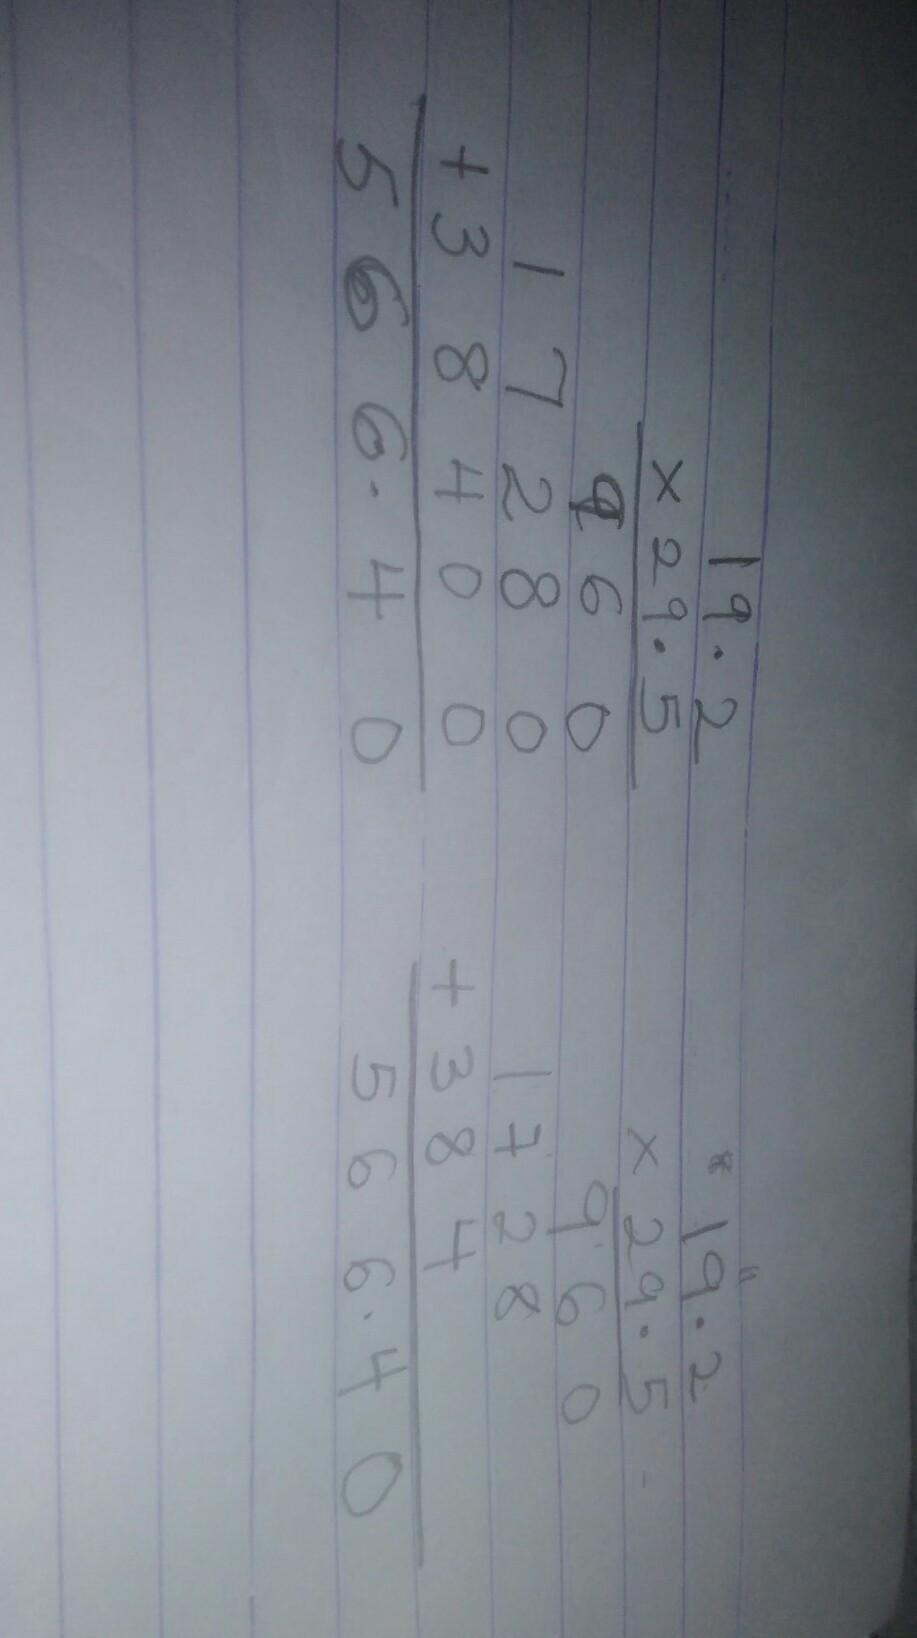 19.2
× 29.5
960
17280
+38400
566.40
19.2
× 29.5
960
1728
+384
566.40